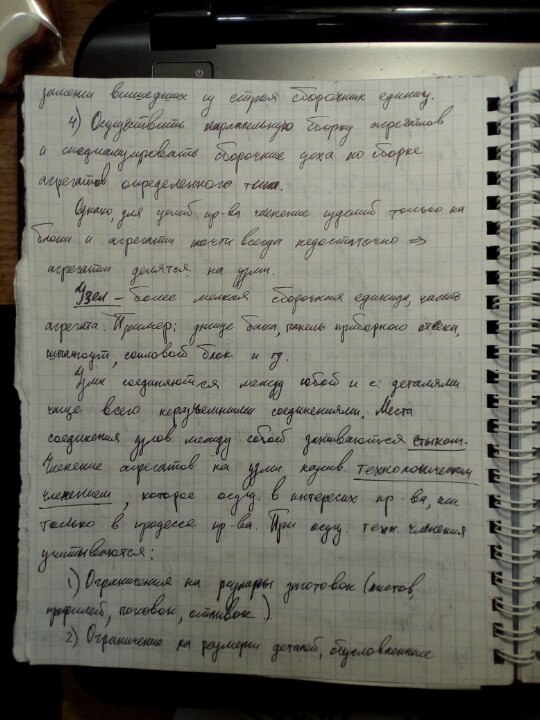 замены вышедших из строя сборочных единиц.
4) Осуществлять параллельную сборку агрегатов
и специализировать сборочные цеха по сборке
агрегатов определенного типа.
Однако, для целей пр-ва членение изделий только на
блоки и агрегаты почти всегда недостаточно ⇒
агрегаты делятся на узлы.
Узел – более мелкая сборочная единица, часть
агрегата. Пример: днище бака, панель приборного отсека,
шпангоут, силовой блок и тд.
Узлы соединяются между собой и с деталями
чаще всего неразъемными соединениями. Места
соединения узлов между собой называются стыком.
Членение агрегатов на узлы назыв. технологическим
членением, которое осущ. в интересах пр-ва,
только в процессе пр-ва. При осущ. техн. членения
учитываются:
1) Ограничения на размеры заготовок (листов,
профилей, поковок, отливок).
2) Ограничение на размеры деталей, обусловленные